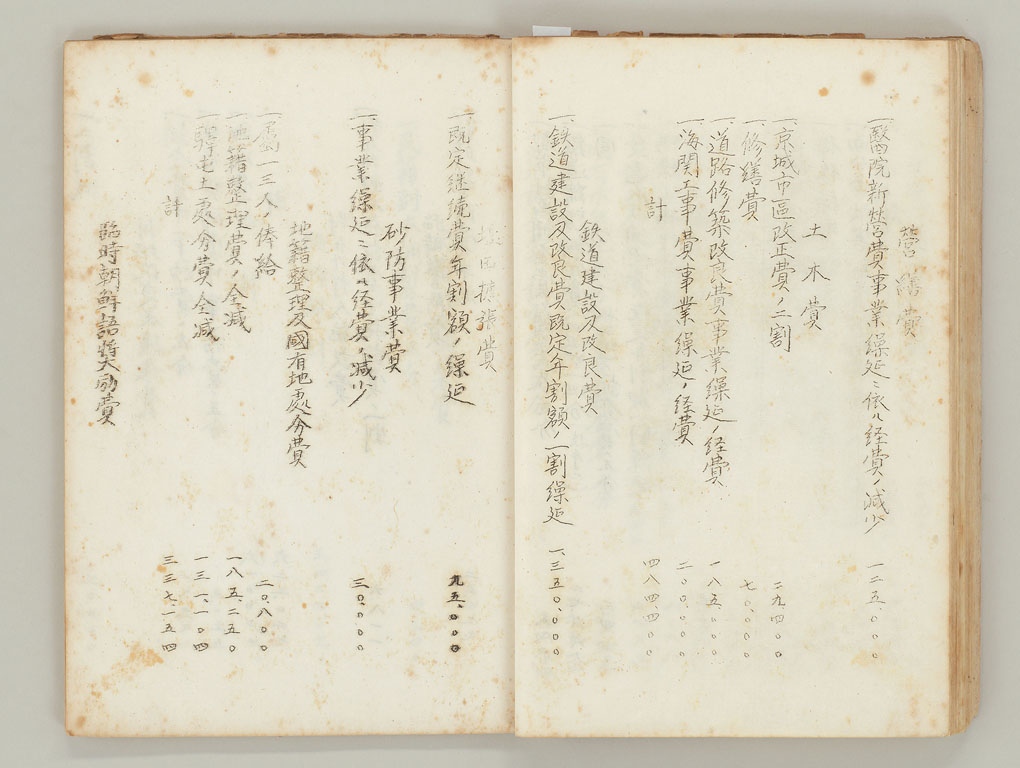 營繕費
一、醫院新營費事業繰延ニ依ル経費ノ減少 一二五、〇〇〇
土木費
一、京城市區改正費ノ二割 二九、四〇〇
一、修繕費 七〇、〇〇〇
一、道路修築改良費事業繰延ノ経費 一八五、〇〇〇
一、海関工事費事業繰延ノ経費 二〇〇、〇〇〇
計 四八四、四〇〇
鉄道建設及改良費
一、鉄道建設及改良費既定年割額ノ一割繰延 一、三五〇、〇〇〇
擴張費
一、既定継続費年割額ノ繰延 九五、〇〇〇
砂防事業費
一、事業繰延ニ依ル経費ノ減少 三〇、〇〇〇
地籍整理及國有地處分費
一、属一三人ノ俸給 二〇、八〇〇
一、地籍整理費ノ全減 一八五、二五〇
一、驛屯土處分費全減 一三一、一〇四
計 三三七、一五四
臨時朝鮮語奨励費